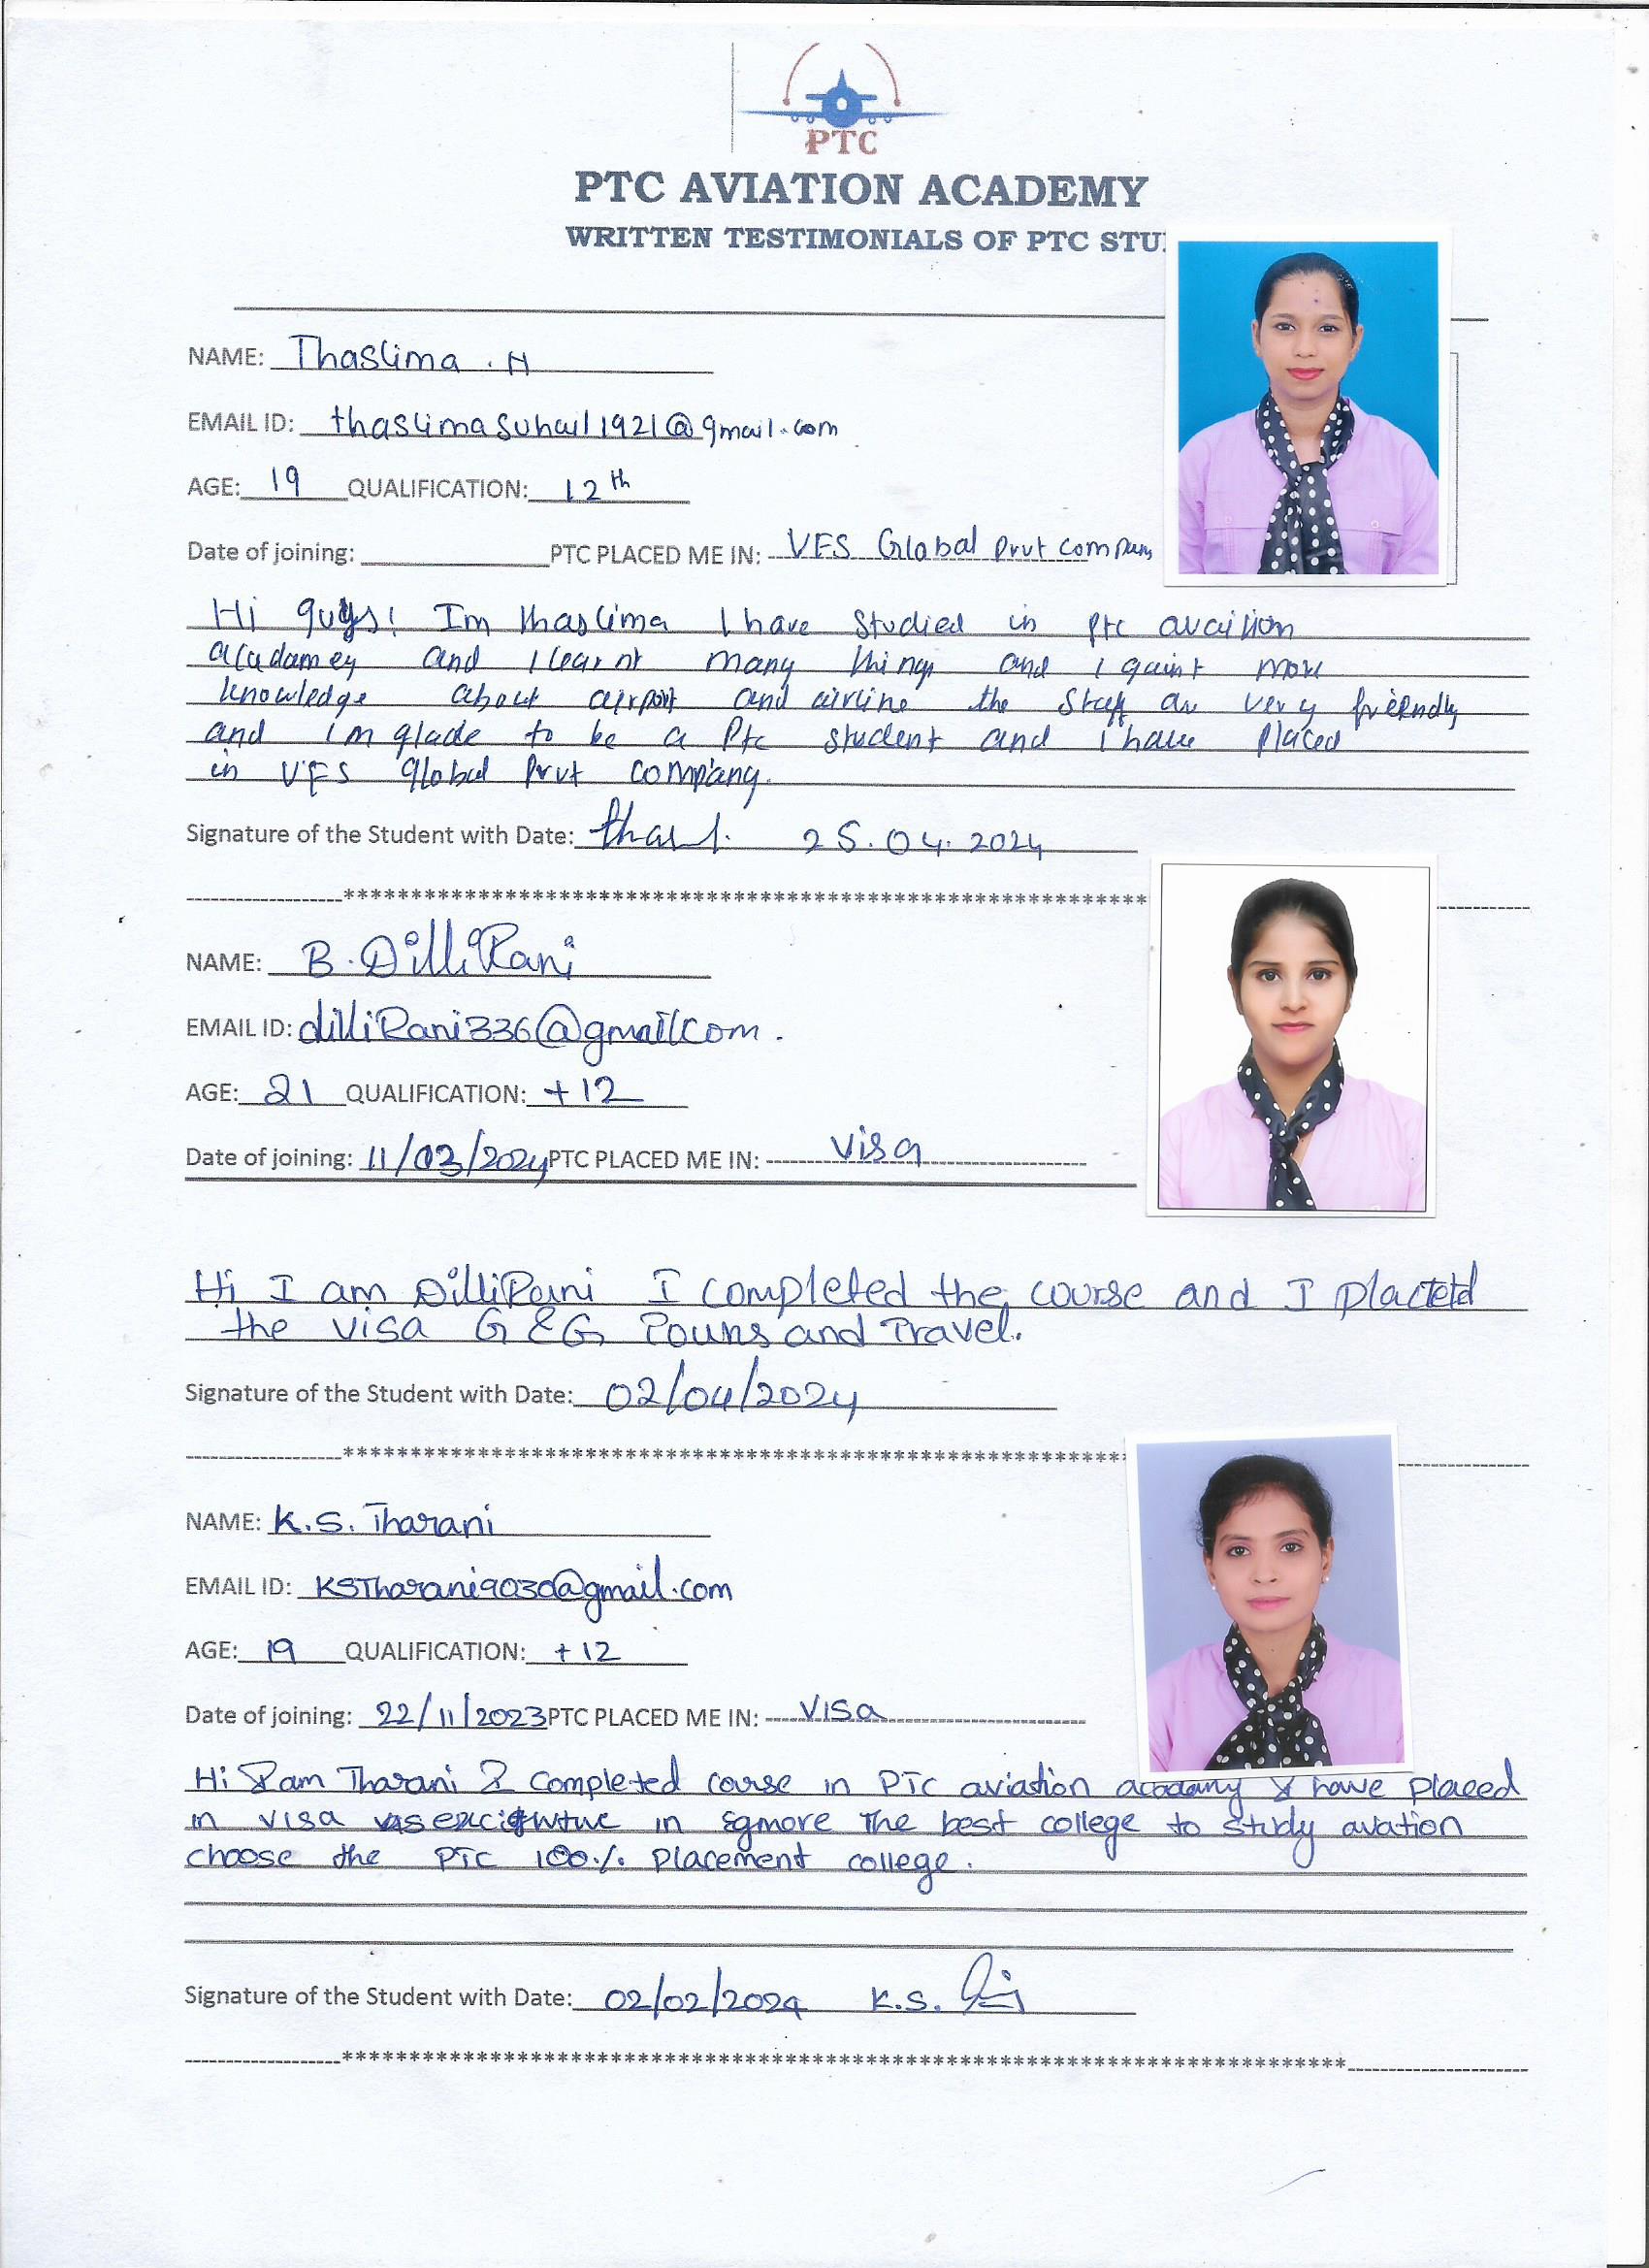 PTC
PTC AVIATION ACADEMY
WRITTEN TESTIMONIALS OF PTC STU
NAME: Thaslima . H
EMAIL ID: thaslimasuhail1921@gmail.com
AGE: 19 QUALIFICATION: 12th
Date of joining: PTC PLACED ME IN: VFS Global Prvt Company
Hi guys! Im thaslima I have studied in ptc avaition
acadamey and I learnt many things and I gaint more
knowledge about airport and airline the staff are very friendly
and im glade to be a Ptc student and i have placed
in VFS global Prvt company.
Signature of the Student with Date: 25.04.2024
NAME: B. DilliRani
EMAIL ID: dilliRani336@gmailcom.
AGE: 21 QUALIFICATION: +12
Date of joining: 11/03/2024 PTC PLACED ME IN: Visa
Hi I am DilliRani I completed the course and I placeted
the visa G & G and Travel.
Signature of the Student with Date: 02/04/2024
NAME: K.S. Tharani
EMAIL ID: KSTharani9030@gmail.com
AGE: 19 QUALIFICATION: +12
Date of joining: 22/11/2023 PTC PLACED ME IN: Visa
Hi I am Tharani I completed course in PTC aviation academy I have placed
in visa in Egmore The best college to study avation
choose the PTC 100% Placement college.
Signature of the Student with Date: 02/02/2024 K.S.